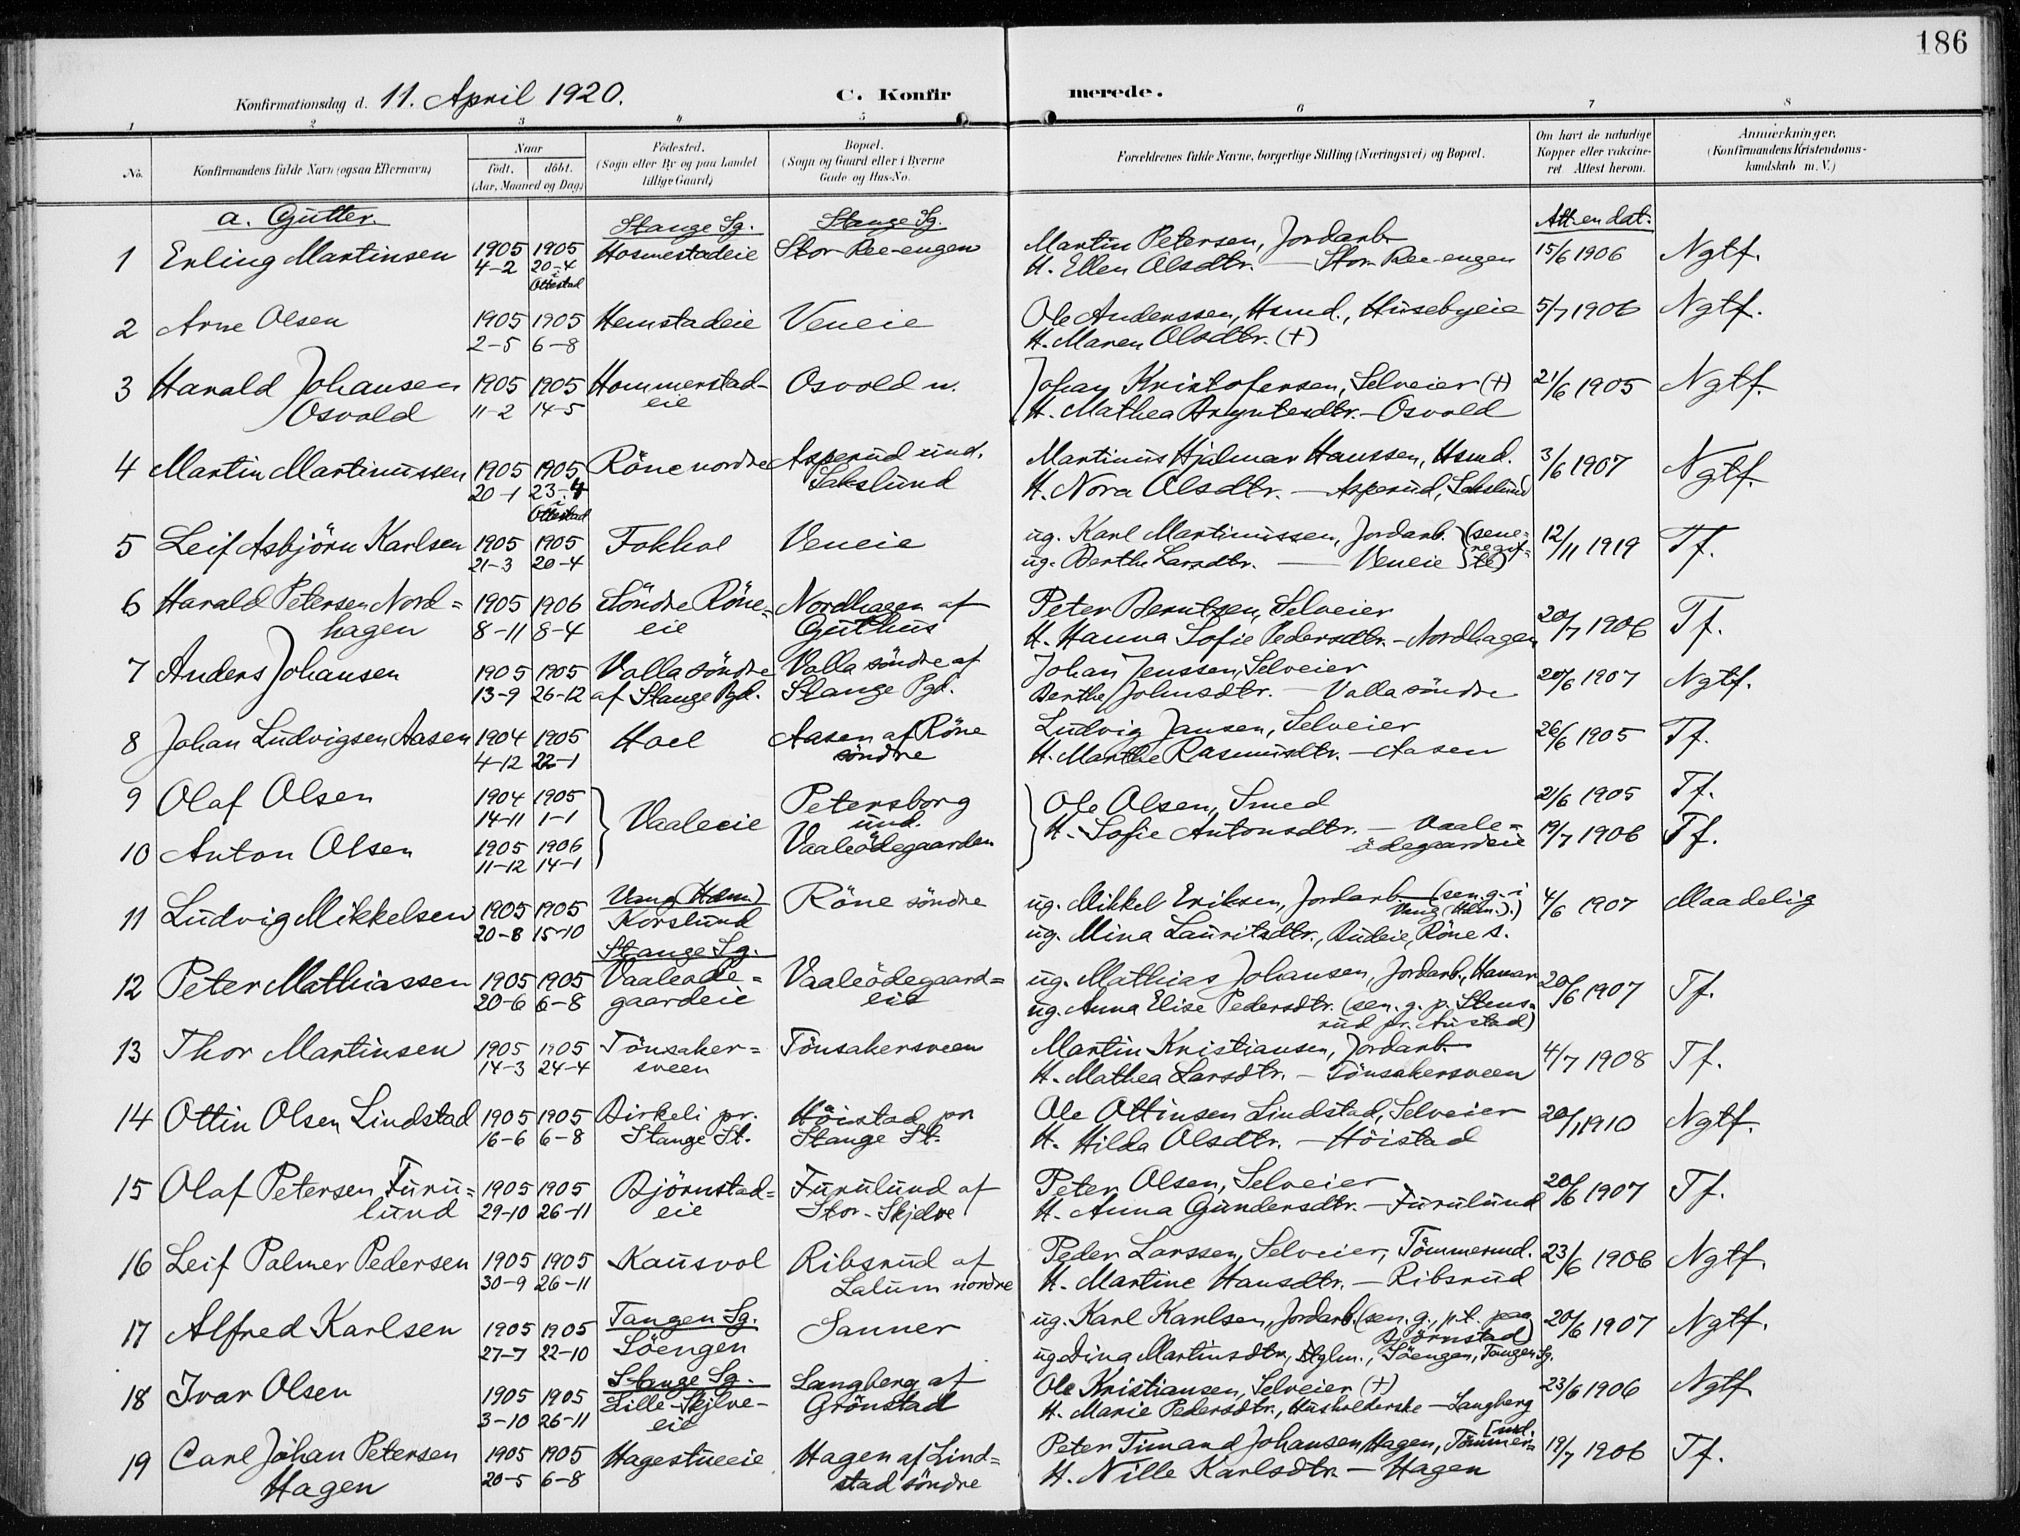 186
Konfirmationsdag d. 11. April 1920. C. Konfirmerede.
1 2 3 4 5 6 7 8
No. Konfirmandens fulde Navn (ogsaa Efternavn) Naar födt. döbt. (Aar, Maaned og Dag) Födested. (Sogn eller By og paa Landet tillige Gaard) Bopæl. (Sogn og Gaard eller i Byerne Gade og Hus-No. Forældrenes fulde Navne, borgerlige Stilling (Næringsvei) og Bopæl. Om havt de naturlige Kopper eller vakcineret Attest herom. Anmærkninger. (Konfirmandens Kristendomskundskab m. V.)
a. Gutter. Stange Sg. Stange Sg. Att. en dat.
1 Erling Martinsen 1905 1905 Hosmestadeie Stor-Ree-engen Martin Petersen, Jordarb. 15/6 1906 Ngtf.
4-2 20-4 i Ottestad H. Ellen Olsdtr. — Stor-Ree-engen
2 Arne Olsen 1905 1905 Hemstadeie Veneie Ole Anderssen, Hsmd., Husebyeie 5/7 1906 Ngtf.
2-5 6-8 H. Maren Olsdtr. (+)
3 Harald Johansen 1905 1905 Hommerstad- Osvold n. Johan Kristofersen, Selveier (+) 21/6 1905 Ngtf.
Osvold 11-2 14-5 eie H. Mathea Bryntesdtr. - Osvold
4 Martin Martinussen 1905 1905 Röne nordre Asperud und. Martinus Hjalmar Hanssen, Hsmd. 3/6 1907 Ngtf.
20-1 23-4 i Ottestad Sakslund H. Nora Olsdtr. — Asperud, Sakslund
5 Leif Asbjörn Karlsen 1905 1905 Fokhol Veneie ug. Karl Martinussen, Jordarb. (sene- 12/11 1919 Tf.
21-3 20-4 ug. Berthe Larsdtr. — Veneie te)
6 Harald Petersen Nord= 1905 1906 Söndre Röne= Nordhagen af Peter Berntsen, Selveier 20/7 1906 Tf.
hagen 8-11 8-4 eie Guthus H. Hanna Sofie Pedersdtr. - Nordhagen
7 Anders Johansen 1905 1905 Valla söndre Valla söndre af Johan Jenssen, Selveier 20/6 1907 Ngtf.
13-9 26-12 af Stange Pgd. Stange Pgd. Berthe Johnsdtr. — Valla söndre
8 Johan Ludvigsen Aasen 1904 1905 Hoel Aasen af Röne Ludvig Jansen, Selveier 26/6 1905 Tf.
4-12 22-1 söndre H. Marthe Rasmusdtr. - Aasen
9 Olaf Olsen 1904 1905 Vaaleeie Petersborg Ole Olsen, Smed 21/6 1905 Tf.
14-11 1-1 und. H. Sofie Antonsdtr. — Vaale=
10 Anton Olsen 1905 1906 Vaaleödegaarden ödegaardeie 19/7 1906 Tf.
11-12 14-1
11 Ludvig Mikkelsen 1905 1905 Vang (Hdm.) Röne söndre ug. Mikkel Eriksen, Jordarb. (sen. g. i Vang (Hdm.).) 4/6 1907 Maadelig
20-8 15-10 Korslund ug. Mina Lauritsdtr., Budeie, Röne s.
Stange Sg.
12 Peter Mathiassen 1905 1905 Vaaleöde= Vaaleödegaard= ug. Mathias Johansen, Jordarb., Hamar 20/6 1907 Tf.
20-6 6-8 gaardeie eie ug. Anna Elise Pedersdtr. (sen. g. p. Stens=
rud pr. Austad)
13 Thor Martinsen 1905 1905 Tönsaker= Tönsakersveen Martin Kristiansen, Jordarb. 4/7 1908 Tf.
14-3 24-4 sveen H. Mathea Larsdtr. - Tönsakersveen
14 Ottin Olsen Lindstad 1905 1905 Birkeli pr. Höistad pr. Ole Ottinsen Lindstad, Selveier 20/1 1910 Ngtf.
16-6 6-8 Stange St. Stange St. H. Hilda Olsdtr. - Höistad
15 Olaf Petersen Furu= 1905 1905 Björnstad= Furulund af Peter Olsen, Selveier 20/6 1907 Tf.
lund 29-10 26-11 eie Stor-Skjelve H. Anna Gundersdtr. - Furulund
16 Leif Palmer Pedersen 1905 1905 Kausvol Ribsrud af Peder Larssen, Selveier, Tömmermd. 23/6 1906 Ngtf.
30-9 26-11 Lalum nordre H. Martine Hansdtr. - Ribsrud
17 Alfred Karlsen 1905 1905 Tangen Sg. Sanner ug. Karl Karlsen, Jordarb. (sen. g., p.t. paa Björnstad) 20/6 1907 Ngtf.
27-7 22-10 Söengen ug. Dina Martinsdtr., Söengen, Tangen Sg.
18 Ivar Olsen 1905 1905 Stange Sg. Langberg af Ole Kristiansen, Selveier (+) 23/6 1906 Ngtf.
3-10 26-11 Lille-Skjelve- eie Grönstad H. Marie Pedersdtr., Husholderske - Langberg
19 Carl Johan Petersen 1905 1905 Hagestueeie Hagen af Lind= Peter Timand Johansen Hagen, Tömmer= [md. 19/7 1906 Tf.
Hagen 20-5 6-8 stad söndre H. Nille Karlsdtr. - Hagen